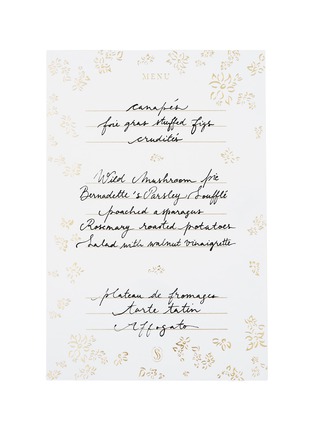 MENU
canapés
foie gras stuffed figs
crudités
Wild Mushroom pie
Bernadette's Parsley Soufflé
poached asparagus
Rosemary roasted potatoes
Salad with walnut vinaigrette
plateau de fromages
tarte tatin
Affogato